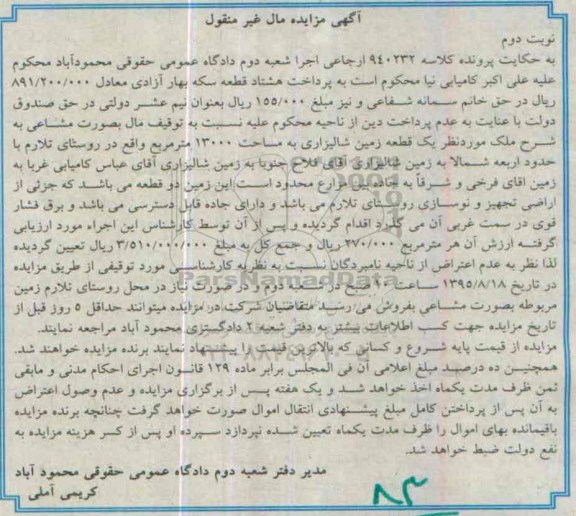 آگهی مزایده مال غیر منقول
نوبت دوم
به حکایت پرونده کلاسه ۹۴۰۲۳۲ ارجاعی اجرا شعبه دوم دادگاه عمومی حقوقی محمودآباد محکوم
علیه علی اکبر کامیابی نیا محکوم است به پرداخت هشتاد قطعه سکه بهار آزادی معادل ۸۹۱/۲۰۰/۰۰۰
ریال در حق خانم سمانه شفاعی و نیز مبلغ ۱۵۵/۰۰۰ ریال بعنوان نیم عشر دولتی در حق صندوق
دولت با عنایت به عدم پرداخت دین از ناحیه محکوم علیه نسبت به توقیف مال بصورت مشاعی به
شرح ملک موردنظر یک قطعه زمین شالیزاری به مساحت ۱۳۰۰۰ مترمربع واقع در روستای تلارم با
حدود اربعه شمالا به زمین شالیزاری آقای فلاح جنوبا به زمین شالیزاری آقای عباس کامیابی غربا به
زمین اقای فرخی و شرقاً به جاده بین مزارع محدود است این زمین دو قطعه می باشد که جزئی از
اراضی تجهیز و نوسازی روستای تلارم می باشد و دارای جاده قابل دسترسی می باشد و برق فشار
قوی در سمت غربی آن می گذرد اقدام گردیده و پس از آن توسط کارشناس این اجراء مورد ارزیابی
گرفته ارزش آن هر مترمربع ۲۷۰/۰۰۰ ریال و جمع کل به مبلغ ۳/۵۱۰/۰۰۰/۰۰۰ ریال تعیین گردیده
لذا نظر به عدم اعتراض از ناحیه نامبردگان نسبت به نظریه کارشناسی مورد توقیفی از طریق مزایده
در تاریخ ۱۳۹۵/۸/۱۸ ساعت ۱۰ صبح در دفتر شعبه دوم و در صورت نیاز در محل روستای تلارم زمین
مربوطه بصورت مشاعی بفروش می رسد متقاضیان شرکت در مزایده میتوانند حداقل ۵ روز قبل از
تاریخ مزایده جهت کسب اطلاعات بیشتر به دفتر شعبه ۲ دادگستری محمود آباد مراجعه نمایند.
مزایده از قیمت پایه شروع و کسانی که بالاترین قیمت را پیشنهاد نمایند برنده مزایده خواهند شد.
همچنین ده درصد مبلغ اعلامی آن فی المجلس برابر ماده ۱۲۹ قانون اجرای احکام مدنی و مابقی
ثمن ظرف مدت یکماه اخذ خواهد شد و یک هفته پس از برگزاری مزایده و عدم وصول اعتراض
به آن پس از پرداختن کامل مبلغ پیشنهادی انتقال اموال صورت خواهد گرفت چنانچه برنده مزایده
باقیمانده بهای اموال را ظرف مدت یکماه تعیین شده نپردازد سپرده او پس از کسر هزینه مزایده به
نفع دولت ضبط خواهد شد.
مدیر دفتر شعبه دوم دادگاه عمومی حقوقی محمود آباد
کریمی آملی
۸۳